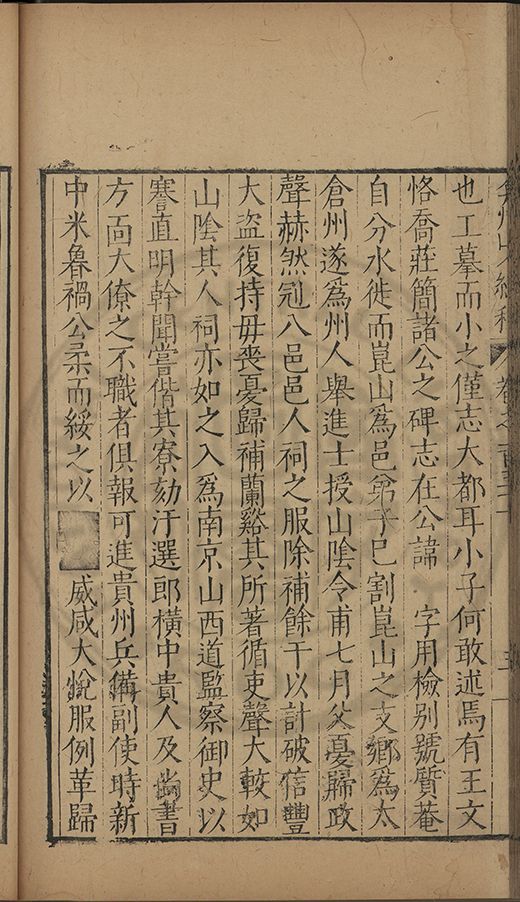 弇州山人續稿 卷之一百三十 三
也工摹而小之僅志大都耳小子何敢述焉有王文
恪喬莊簡諸公之碑志在公諱 字用檢別號質菴
自分水徙而崑山爲邑弟子已割崑山之支鄉爲太
倉州遂爲州人舉進士授山陰令甫七月父憂歸政
聲赫然冠八邑邑人祠之服除補餘干以計破信豐
大盜復持毋喪憂歸補蘭谿其所著循吏聲大較如
山陰其人祠亦如之入爲南京山西道監察御史以
謇直明幹聞嘗偕其寮劾汙選郎橫中貴人及尚書
方面大僚之不職者俱報可進貴州兵備副使時新
中米魯禍公柔而綏之以 威咸大悅服例革歸